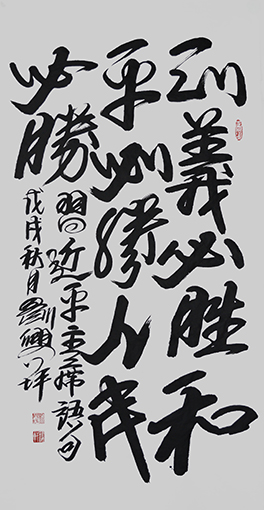 正義必胜和
平必勝人民
必勝
習近平主席語句
戊戌秋月劉興坪